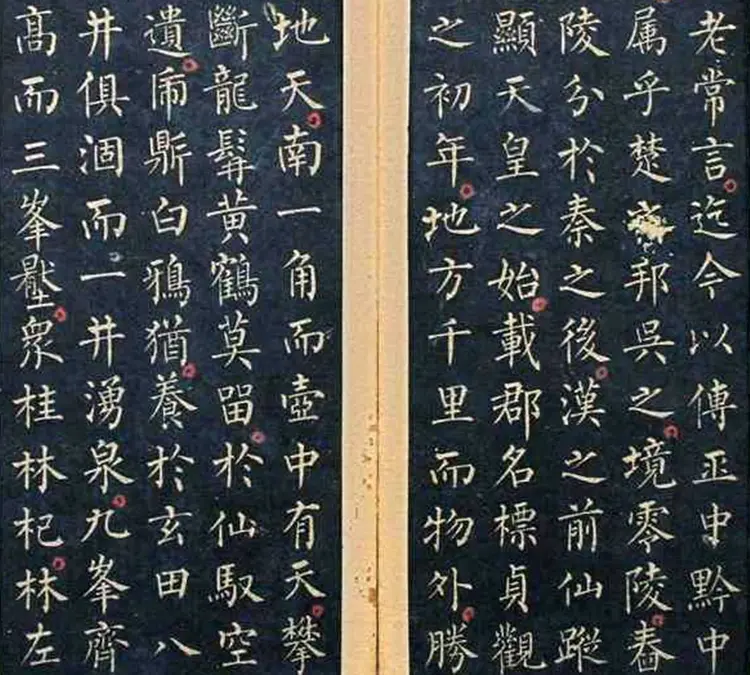 老常言迄今以傳中黔中
属乎楚邦吳之境零陵舂
陵分於秦之後漢之前仙蹤
顯天皇之始載郡名標貞觀
之初年地方千里而物外勝
地天南一角而壺中有天攀
斷龍髯黄鶴莫留於仙馭空
遺鼎白鴉猶養於玄田八
井俱涸而一井湧泉九峯齊
髙而三峯壓衆桂林杞林左